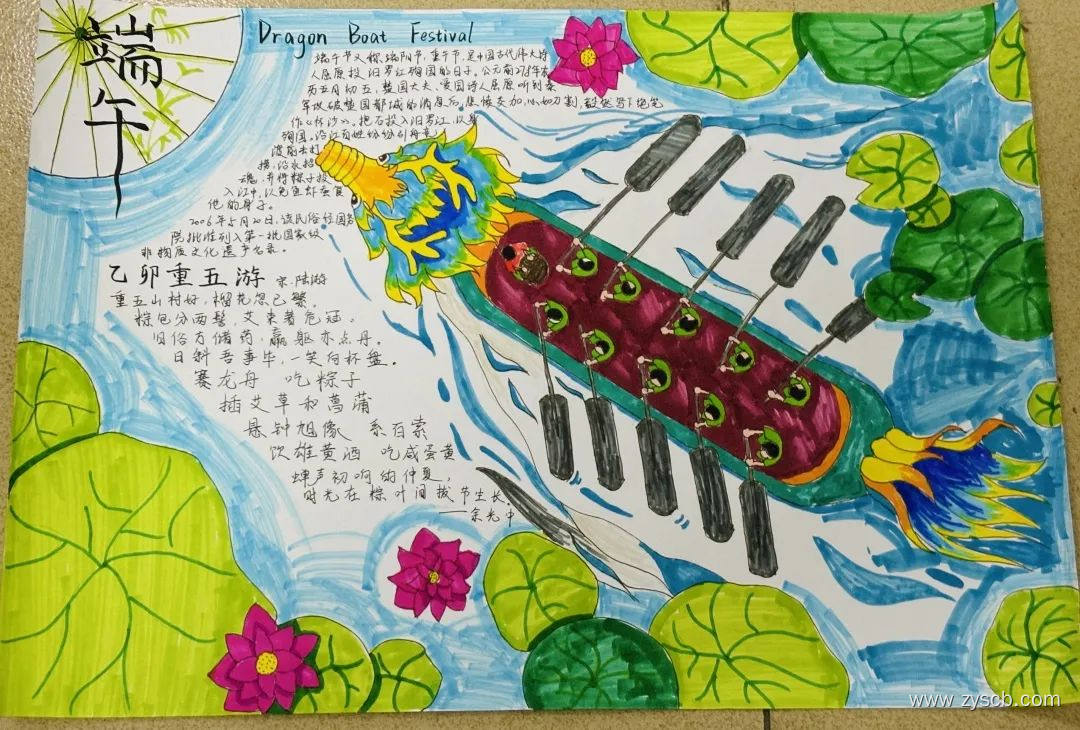 端午
Dragon Boat Festival
端午节又称端阳节,重午节,是中国古代伟大诗
人屈原投汨罗江殉国的日子。公元前278年农
历五月初五,楚国大夫、爱国诗人屈原听到秦
军攻破楚国都城的消息后,悲愤交加,心如刀割,毅然写下绝笔
作《怀沙》。抱石投入汨罗江,以身
殉国。沿江百姓纷纷引舟竞
渡前去打
捞,沿水招
魂,并将粽子投
入江中,以免鱼虾蚕食
他的身子。
2006年5月20日,该民俗经国务
院批准列入第一批国家级
非物质文化遗产名录。
乙卯重五游 宋·陆游
重五山村好,榴花忽已繁。
粽包分两髻,艾束著危冠。
旧俗方储药,羸躯亦点丹。
日斜吾事毕,一笑向杯盘。
赛龙舟 吃粽子
插艾草和菖蒲
悬钟馗像 系百索
饮雄黄酒 吃咸蛋黄
蝉声初响的仲夏,
时光在粽叶间拔节生长。
——余光中
www.zyscb.com